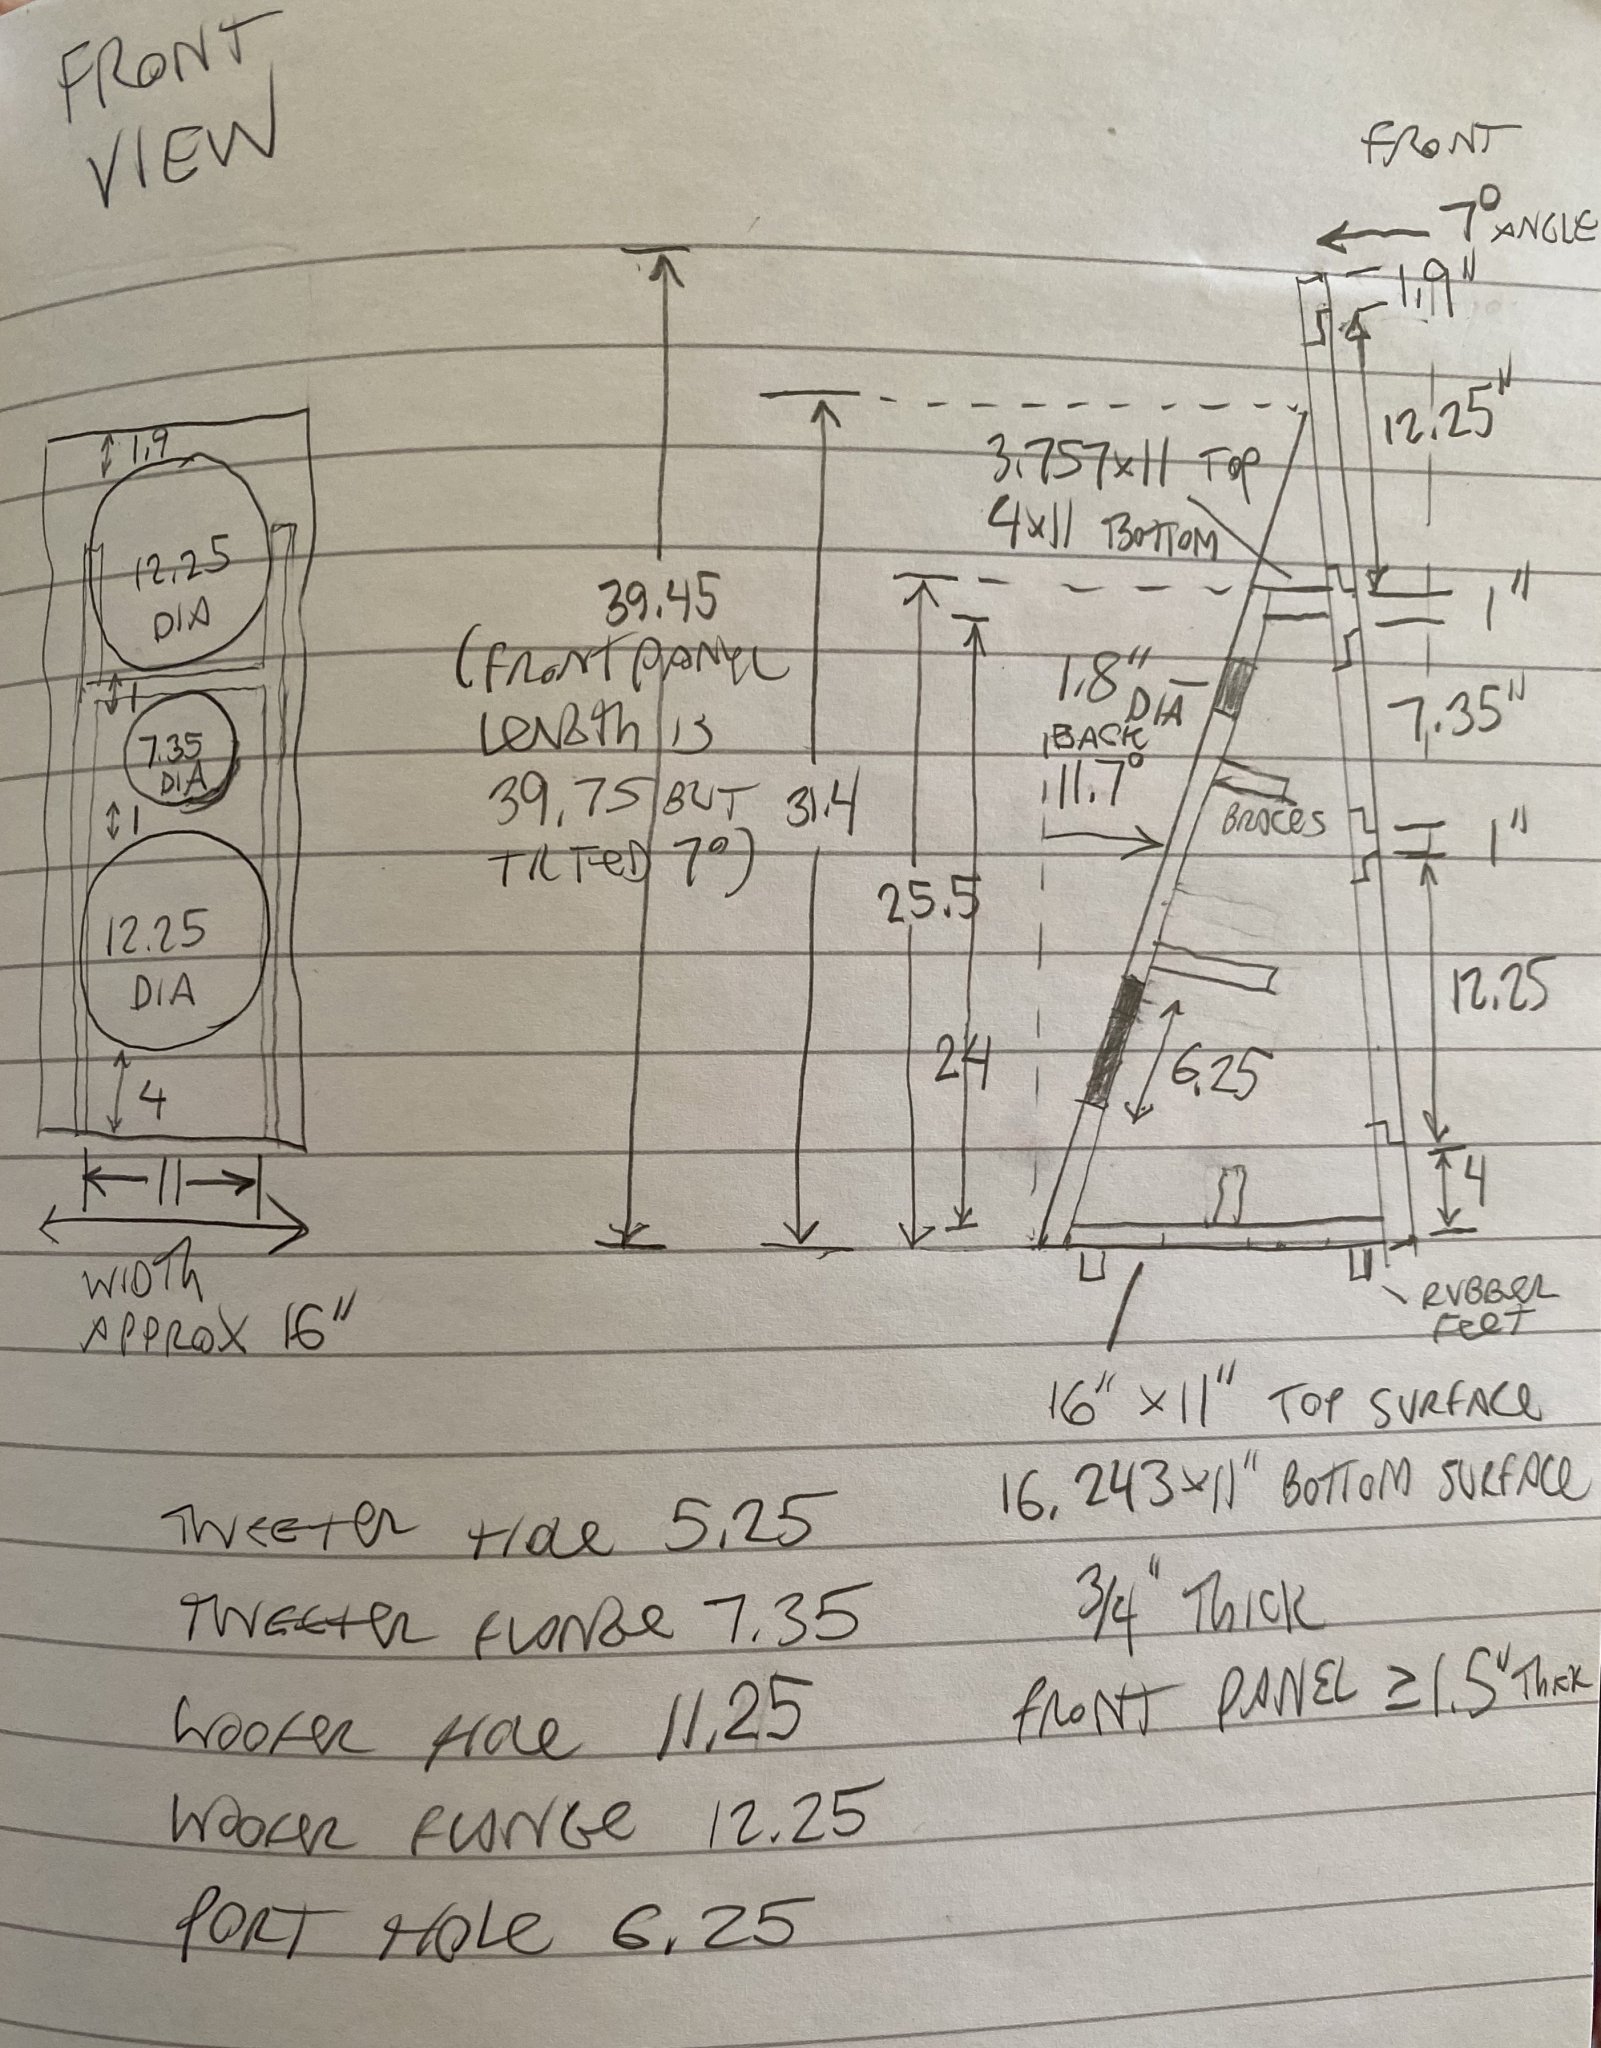 FRONT
VIEW
1.9
12.25
DIA
1
7.35
DIA
1
12.25
DIA
4
11
WIDTH
APPROX 16"
39.45
(FRONT PANEL
LENGTH IS
39.75 BUT
TILTED 7°)
31.4
25.5
24
FRONT
7° ANGLE
1.9"
12.25"
3.757x11 TOP
4x11 BOTTOM
1"
1.8"
DIA
BACK
11.7°
7.35"
BRACES
1"
12.25
6.25
4
RUBBER
FEET
16" x 11" TOP SURFACE
16.243x11" BOTTOM SURFACE
3/4" THICK
FRONT PANEL ≥1.5" THICK
TWEETER HOLE 5.25
TWEETER FLANGE 7.35
WOOFER HOLE 11.25
WOOFER FLANGE 12.25
PORT HOLE 6.25